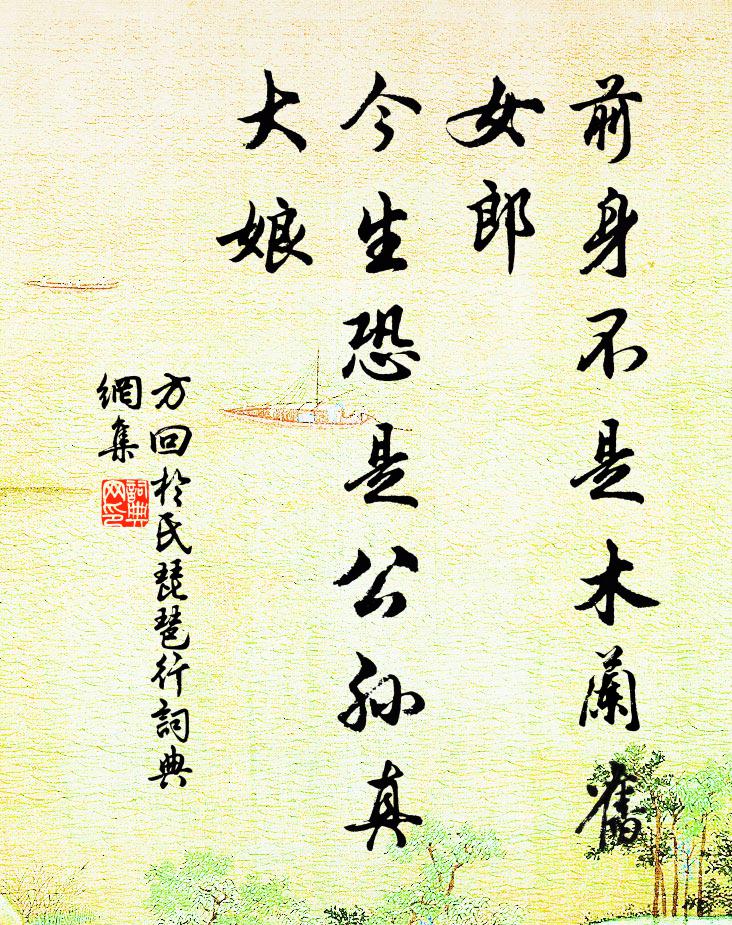 前身不是木蘭舊
女郎
今生恐是公孫真
大娘
方回於氏琵琶行詞典
網集
詞典
网印